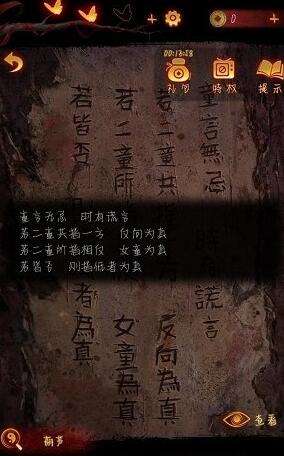 0
00:18:58
礼包
特权
提示
童言無忌 謊言
若二童共 反向為真
若二童所 女童為真
若皆否 者為真
童言无忌 时有谎言
若二童共指一方 反向为真
若二童所指相反 女童为真
若皆否 则指低者为真
查看
葫芦